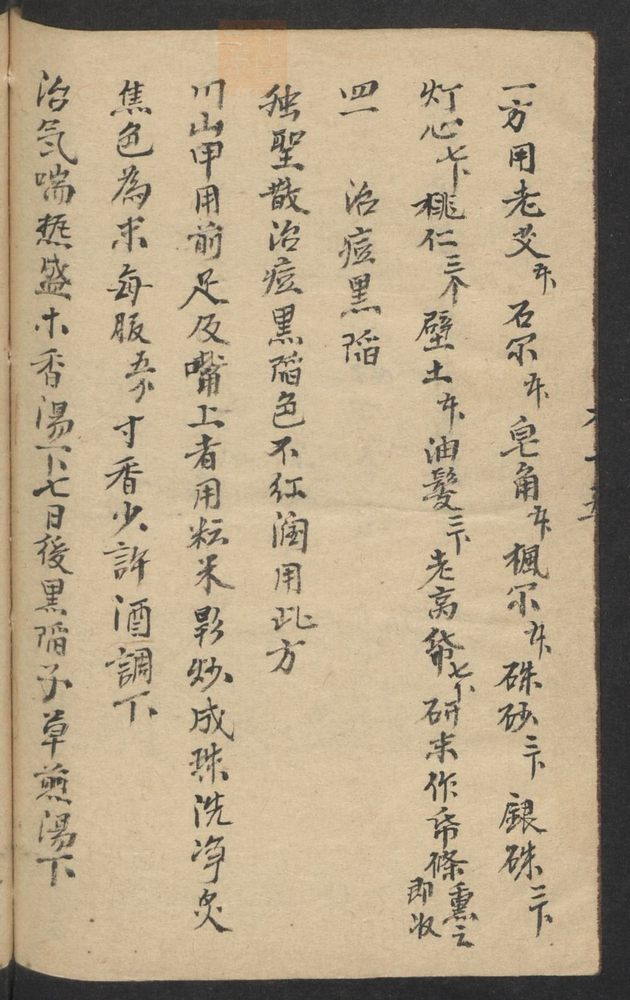 一方用老艾 石 皂角 楓 硃砂三下 銀硃三下
灯心七下桃仁三个壁土 油髮三下老 七下研末作 條熏之
即收
四一 治痘黑陷
独聖散治痘黑陷色不红润用此方
川山甲用前足及嘴上者用粘米 炒成珠洗净炙
焦色為末每服 寸香少許酒調下
治氣喘 盛木香湯下七日後黑陷 草煎湯下